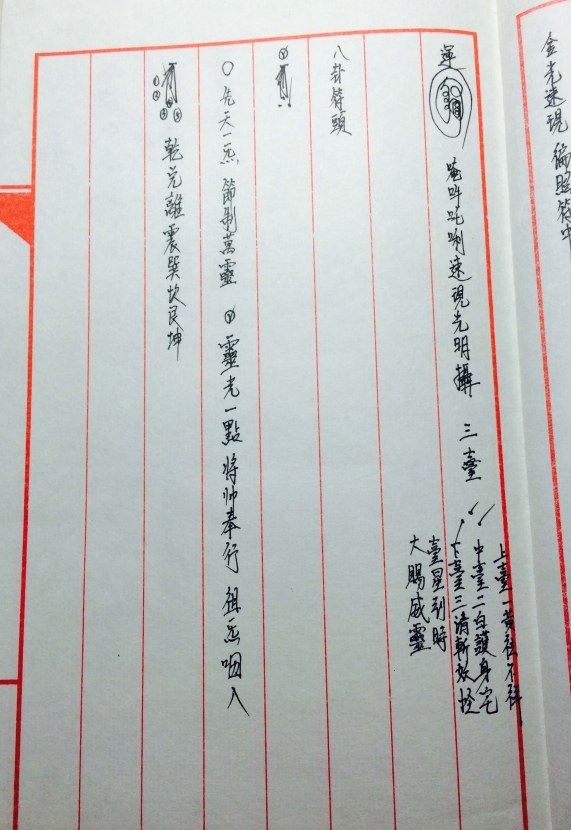 金光速現徧照符中
運
唵吽吒唎速現光明攝 三臺
上臺一黃祛不祥
中臺二白護身宅
下臺三清斬妖怪
臺星到時
大賜威靈
八卦符頭
〇先天一炁 節制萬靈 靈光一點 將帥奉行 祖炁咽入
乾兌離震巽坎艮坤